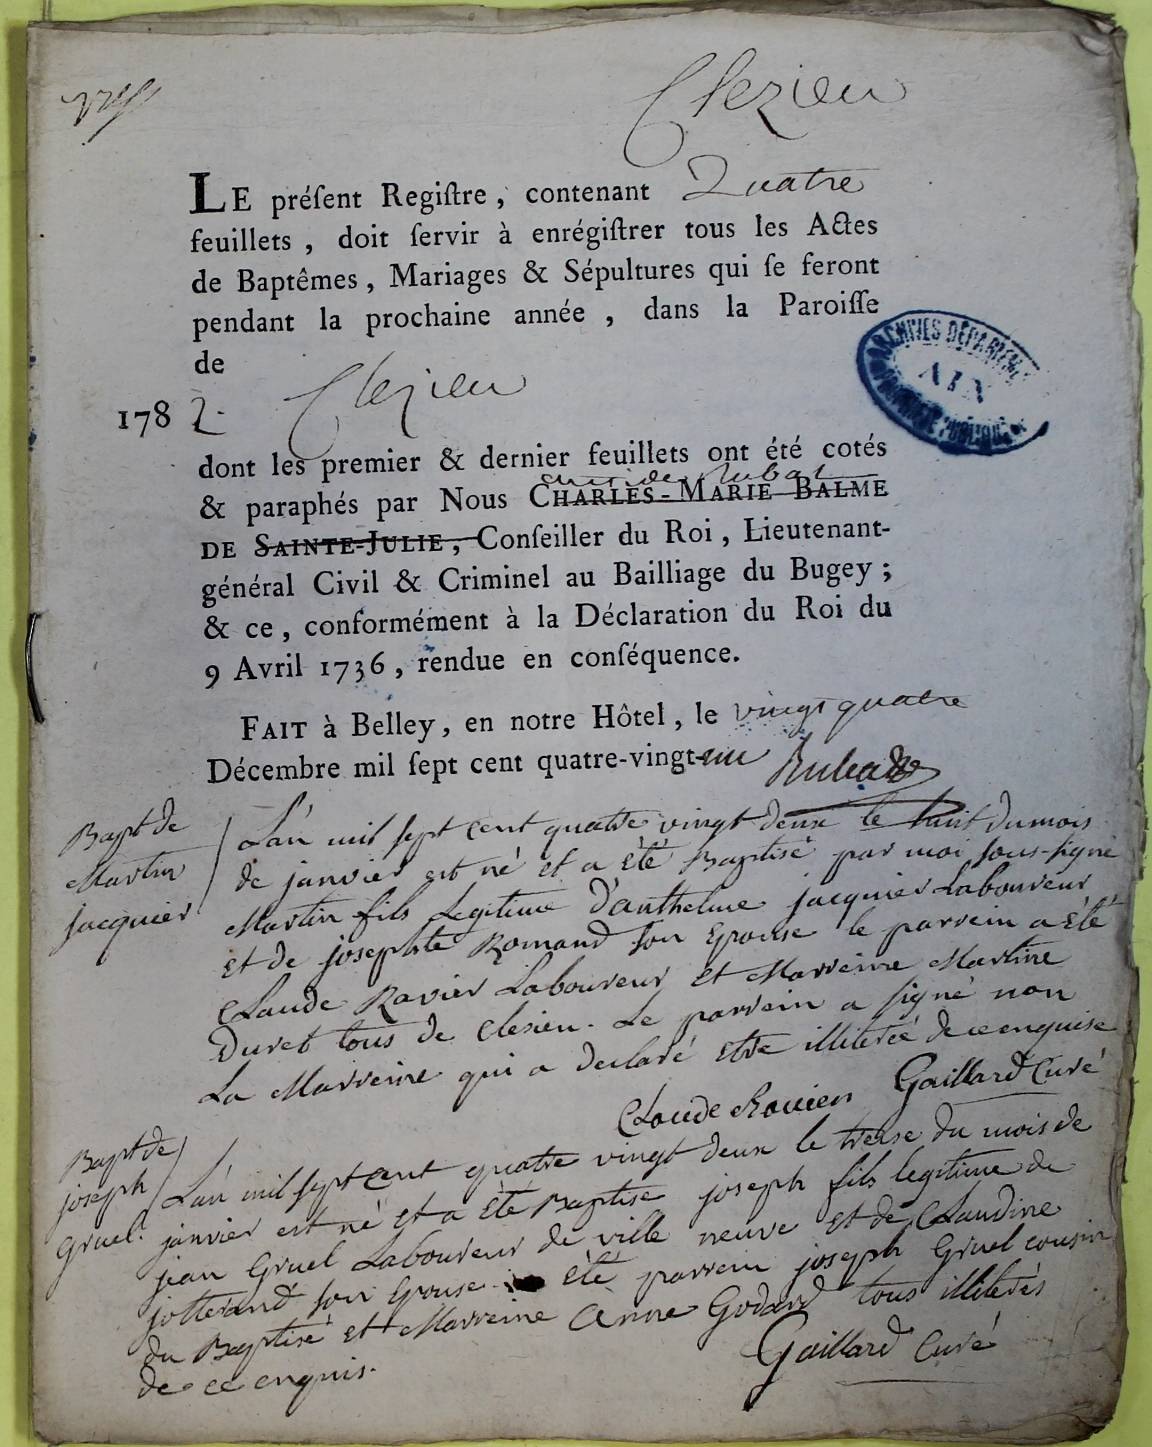 Clezieu
LE préſent Regiſtre, contenant Quatre
feuillets, doit ſervir à enrégiſtrer tous les Actes
de Baptêmes, Mariages & Sépultures qui ſe feront
pendant la prochaine année, dans la Paroiſſe
de
Clezieu
1782.
ARCHIVES DÉPARTEM
AIN
dont les premier & dernier feuillets ont été cotés
Rubat
& paraphés par Nous CHARLES-MARIE BALME
DE SAINTE-JULIE, Conſeiller du Roi, Lieutenant-
général Civil & Criminel au Bailliage du Bugey;
& ce, conformément à la Déclaration du Roi du
9 Avril 1736, rendue en conſéquence.
FAIT à Belley, en notre Hôtel, le vingt quatre
Décembre mil ſept cent quatre-vingt-un Rubat
Bapt de
Martin
jacquier
L'an mil sept cent quatre vingt deux le huit du mois
de janvier est né et a été Baptisé par moi sous-signé
Martin fils Legitime d'anthelme jacquier Laboureur
et de josephte Romand son Epouse le parrein a été
Claude Ravier Laboureur et Marreine Martine
Duret tous de Clesieu. Le parrein a signé non
La Marreine qui a declaré etre illiterée de ce enquise
Claude Gaillard Curé
Bapt de
joseph
Gruel.
L'an mil sept cent quatre vingt deux le treise du mois de
janvier est né et a été Baptise joseph fils legitime de
jean Gruel Laboureur de ville neuve et de Claudine
jotterand son Epouse été parrein joseph Gruel cousin
du Baptisé et Marreine Anne Godard tous illiterés
de ce enquis.
Gaillard Curé